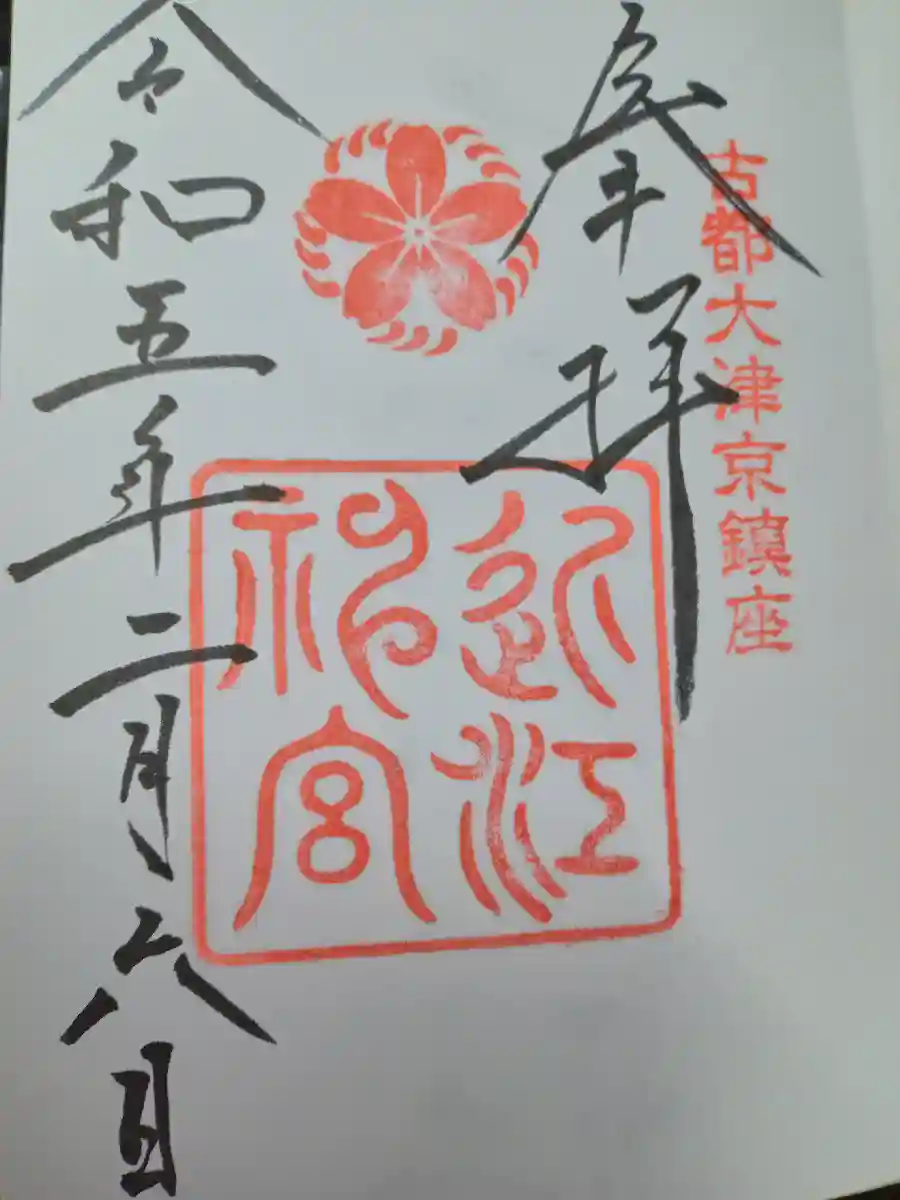 古都大津京鎮座
奉拝
近江
神宮
令和五年二月六日